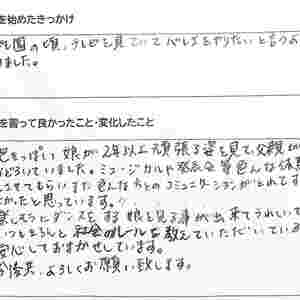 を始めたきっかけ
園の頃、テレビを見ていてバレエをやりたいと言うよ
ました。
を習って良かったこと・変化したこと
っぽい娘が2年以上頑張る姿を見て、父親が
どろいていました。ミュージカルや発表会等色んな体験
させてもらいまた色んな方とのコミュニケーションがとれてす
かったと思っています。
楽しそうにダンスをする娘を見る事が出来てうれしいで
いつもきちんと社会のルールを教えていただいている
安心しておまかせしています。
今後共、よろしくお願い致します。